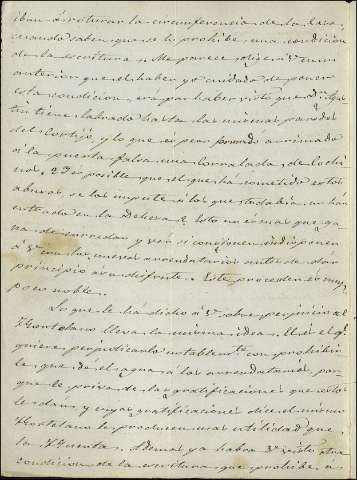 iban á roturar la circunferencia de la Casa,
cuando saben que se les prohibe una condicion
de la escritura. Me parece
anterior que el haber yo cuidado de poner
esta condicion, era por haber visto que Dn Agus
tin tiene labrado hasta las mismas paredes
del Cortijo, y lo que es peor formado arrimado
á la puerta falsa una corralada de cochi
nos. ¿Es posible que el que há cometido estos
abusos, se los impute á los que todabia no han
entrado en la Dehesa? Esto no es mas que ga
na de enredar, y ver si consiguen indisponer
á V. con los nuevos arrendatarios antes de dar
principio á su disfrute. Este proceder es muy
poco noble.
Lo que le há dicho á V. sobre perjuicio al
Hortelano lleva la misma idea. El es el q.
quiere perjudicarlo notablemte con prohibir
le que dé el agua á los arrendatarios, por
que le priva de las gratificaciones que estos
le dán, y cuyas gratificaciones dice el mismo
Hortelano le producen mas utilidad que
la Huerta. Ademas ya habrá V. visto otra
condicion de la escritura que prohibe, á